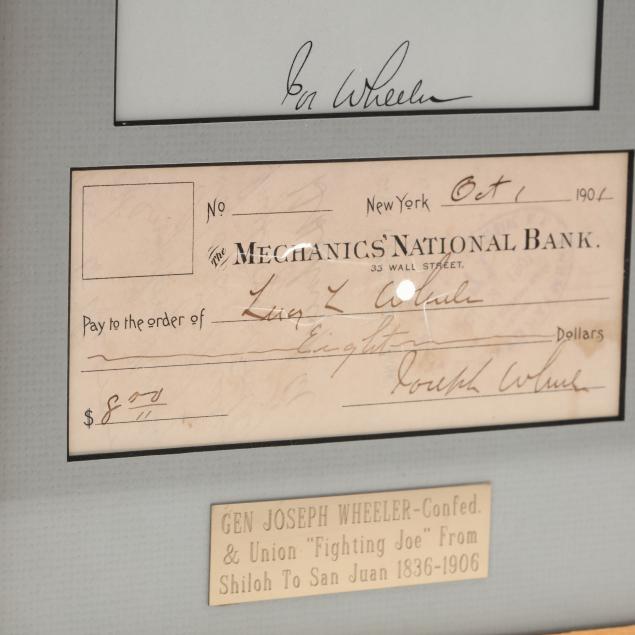 Jos Wheeler
No
New York Oct 1 1901
The MECHANICS' NATIONAL BANK.
33 WALL STREET.
Pay to the order of Lucy L Wheeler
Eight Dollars
$ 8 00/11
Joseph Wheeler
GEN JOSEPH WHEELER-Confed.
& Union "Fighting Joe" From
Shiloh To San Juan 1836-1906